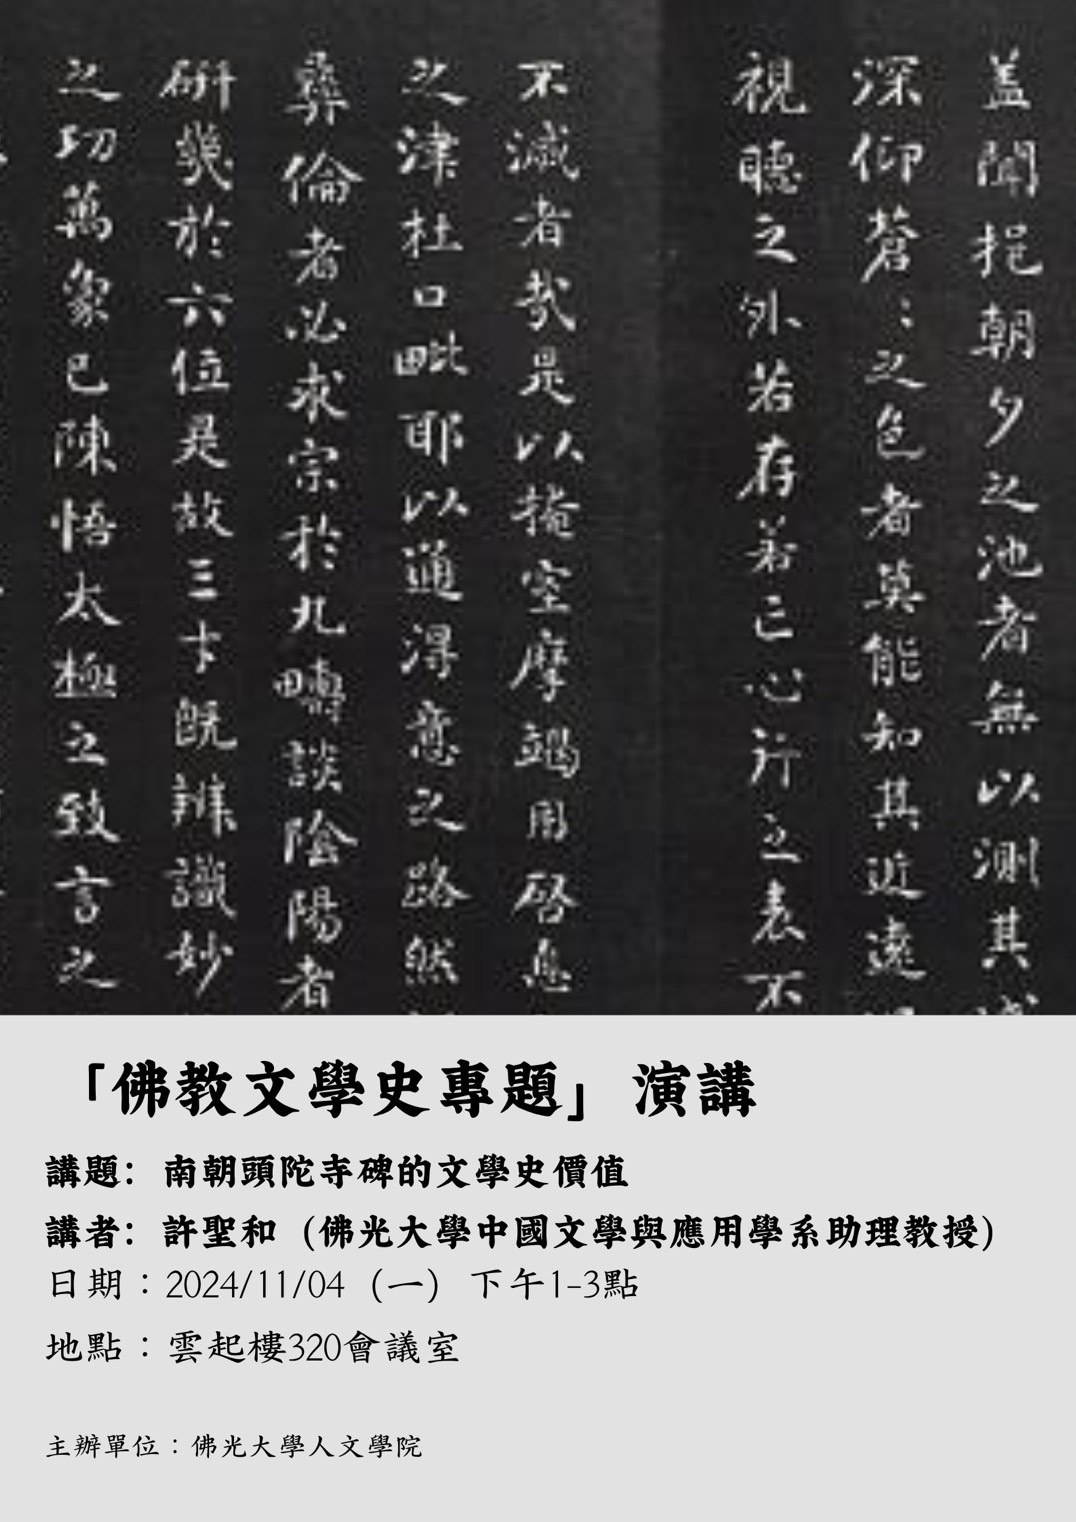 盖聞挹朝夕之池者無以測其
深仰蒼〻之色者莫能知其近遠
視聽之外若存若亡心行之表不
不滅者哉是以掩室摩竭用啓息
之津杜口毗耶以通得意之路然
彝倫者必求宗於九疇談陰陽者
研幾於六位是故三才既辨識妙
之功萬象已陳悟太極之致言之
「佛教文學史專題」演講
講題：南朝頭陀寺碑的文學史價值
講者：許聖和（佛光大學中國文學與應用學系助理教授）
日期：2024/11/04（一）下午1-3點
地點：雲起樓320會議室
主辦單位：佛光大學人文學院